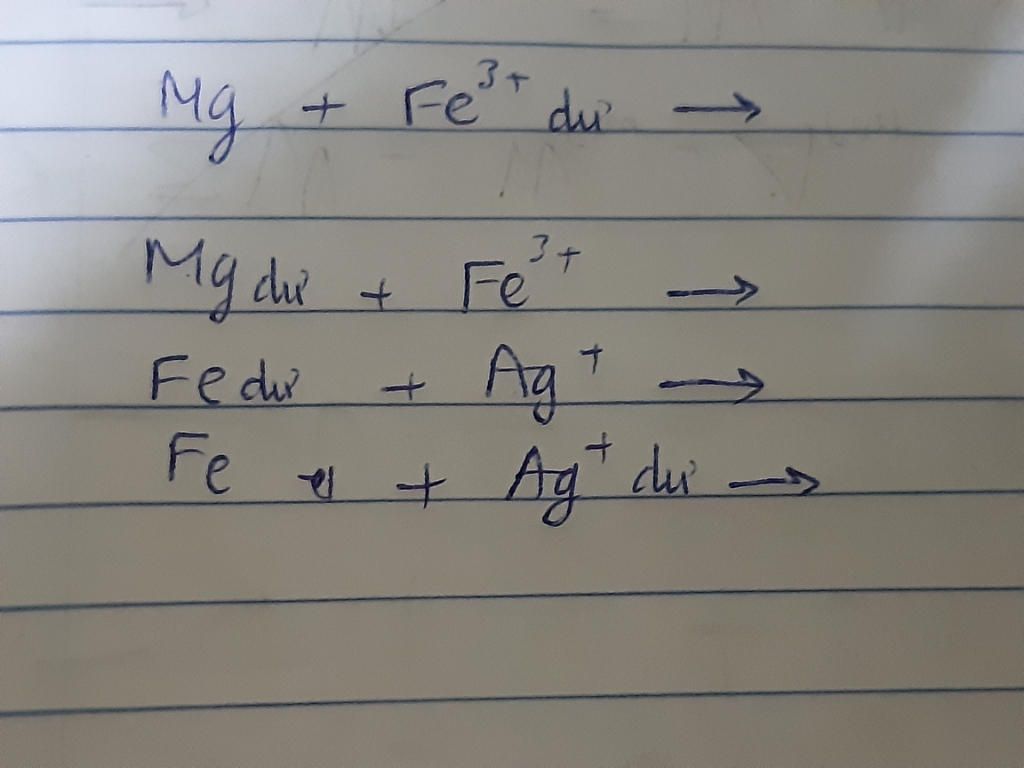 Mg + Fe³⁺ dư →
Mg dư + Fe³⁺ →
Fe dư + Ag⁺ →
Fe + Ag⁺ dư →